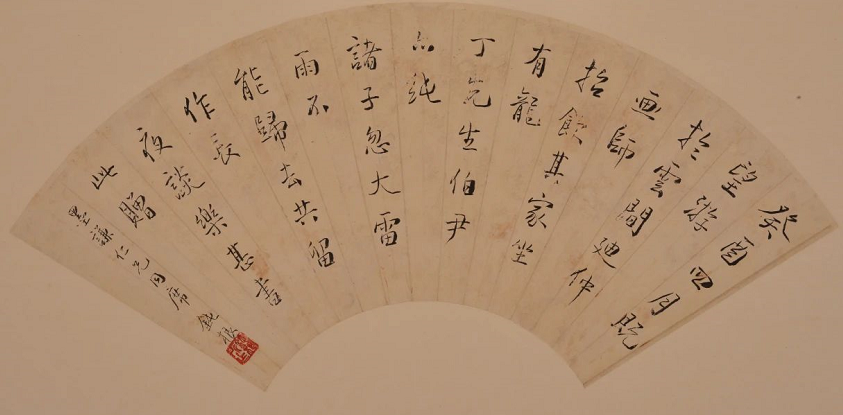 癸酉四月既
望游
於雲間廸仲
画師
招飲其家坐
有龍
丁先生伯尹
亦純
諸子忽大雷
雨不
能歸去共留
作長
夜談樂甚書
此贈
墨謙仁兄同席 鈍根